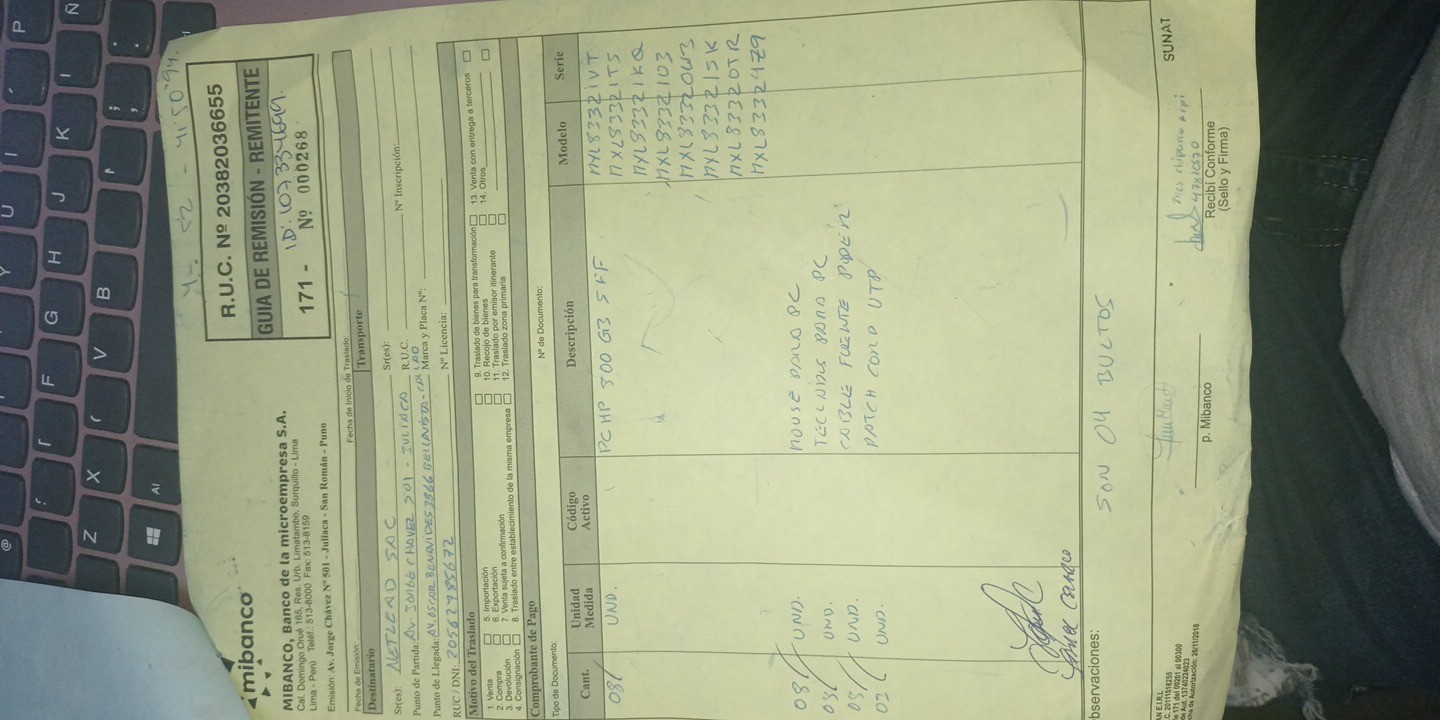 mibanco
MIBANCO, Banco de la microempresa S.A.
Cal. Domingo Orué 165, Res. Urb. Limatambo, Surquillo - Lima
Lima - Perú Teléf.: 513-8000 Fax: 513-8159
Emisión: Av. Jorge Chávez Nº 501 - Juliaca - San Román - Puno
R.U.C. Nº 20382036655
GUIA DE REMISIÓN - REMITENTE
171 - Nº 000268
Fecha de Emisión:
Fecha de Inicio de Traslado:
Destinatario
Transporte
Sr(es): NETLEND SAC
Sr(es):
Punto de Partida: AV. JORGE CHAVEZ 501 - JULIACA
R.U.C.
Nº Inscripción:
Punto de Llegada: AV. OSCAR BENAVIDES 3866 BELLAVISTA - CALLAO
Marca y Placa Nº:
RUC / DNI: 20562785672
Nº Licencia:
Motivo del Traslado
1. Venta
2. Compra
3. Devolución
4. Consignación
5. Importación
6. Exportación
7. Venta sujeta a confirmación
8. Traslado entre establecimiento de la misma empresa
9. Traslado de bienes para transformación
10. Recojo de bienes
11. Traslado por emisor itinerante
12. Traslado zona primaria
13. Venta con entrega a terceros
14. Otros
Comprobante de Pago
Tipo de Documento:
Nº de Documento:
Cant. Unidad Medida Código Activo Descripción Modelo Serie
08 UND. PC HP 300 G3 SFF MXL83321VT
MXL83321TS
MXL83321KQ
MXL8332103
MXL83320W3
MXL833215K
MXL83320TR
MXL83324Z9
08 UND. MOUSE PARA PC
03 UND. TECLADOS PARA PC
05 UND. CABLE FUENTE PODER
03 UND. PATCH CORD UTP
bservaciones:
SON 04 BULTOS
p. Mibanco
Recibí Conforme
(Sello y Firma)
SUNAT